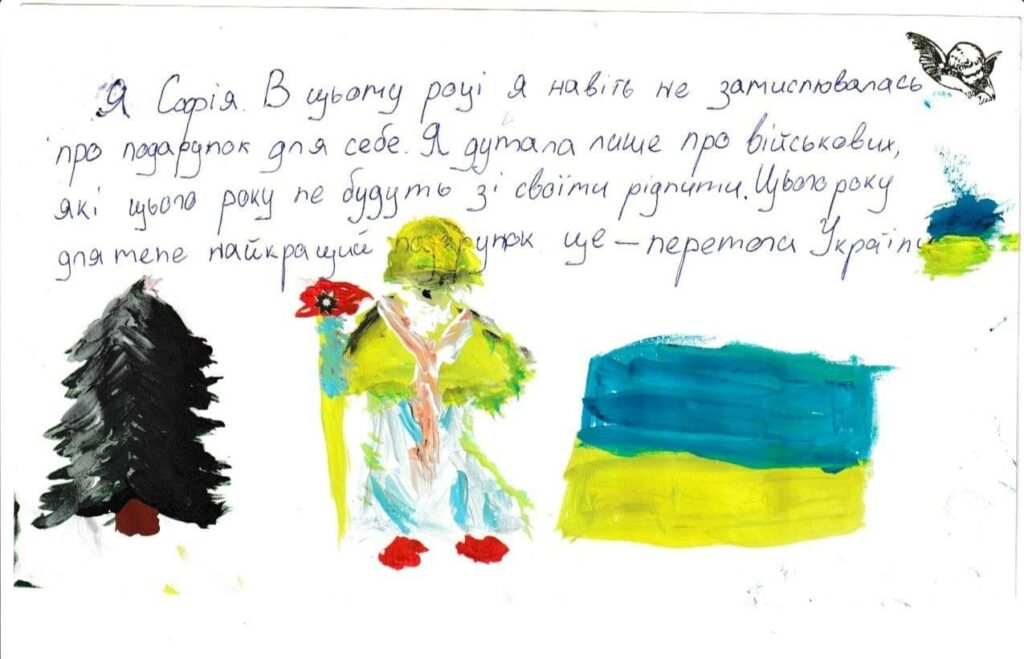 Я Софія. В цьому році я навіть не замислювалась
про подарунок для себе. Я думала лише про військових,
які цього року не будуть зі своїми рідними. Цього року
для мене найкращий подарунок це – перемога України